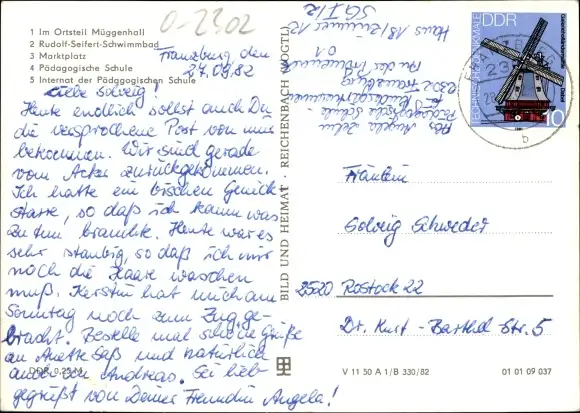 0-2302
1 Im Ortsteil Müggenhall
2 Rudolf-Seifert-Schwimmbad
3 Marktplatz
4 Pädagogische Schule
5 Internat der Pädagogischen Schule
Franzburg, den
27.09.82
Liebe Solveig!
Heute endlich sollst auch Du
die versprochene Post von mir
bekommen. Wir sind gerade
vom Acker zurückgekommen.
Ich hatte ein bischen Genick-
starre, so daß ich kaum was
zu tun brauchte. Heute war es
sehr staubig, so daß ich mir
noch die Haare waschen
muß. Kerstin hat mich am
Sonntag noch zum Zug ge-
bracht. Bestelle mal schöne Grüße
an Anette Saß und natürlich
an deinen Andreas. Sei lieb
gegrüßt von Deiner Freundin Angela!
DDR 0,25 M
BILD UND HEIMAT · REICHENBACH (VOGTL)
Abs. Angela
Pädagogische Schule
f. Kindergärtnerinnen
2302 Franzburg
An der
01
Haus 18/Zimmer 13
SG I/2
DDR
TECHNISCHE DENKMALE
10
b
Fräulein
Solveig Schweder
2520 Rostock 22
Dr. Kurt-Barthel Str. 5
V 11 50 A 1/B 330/82
01 01 09 037